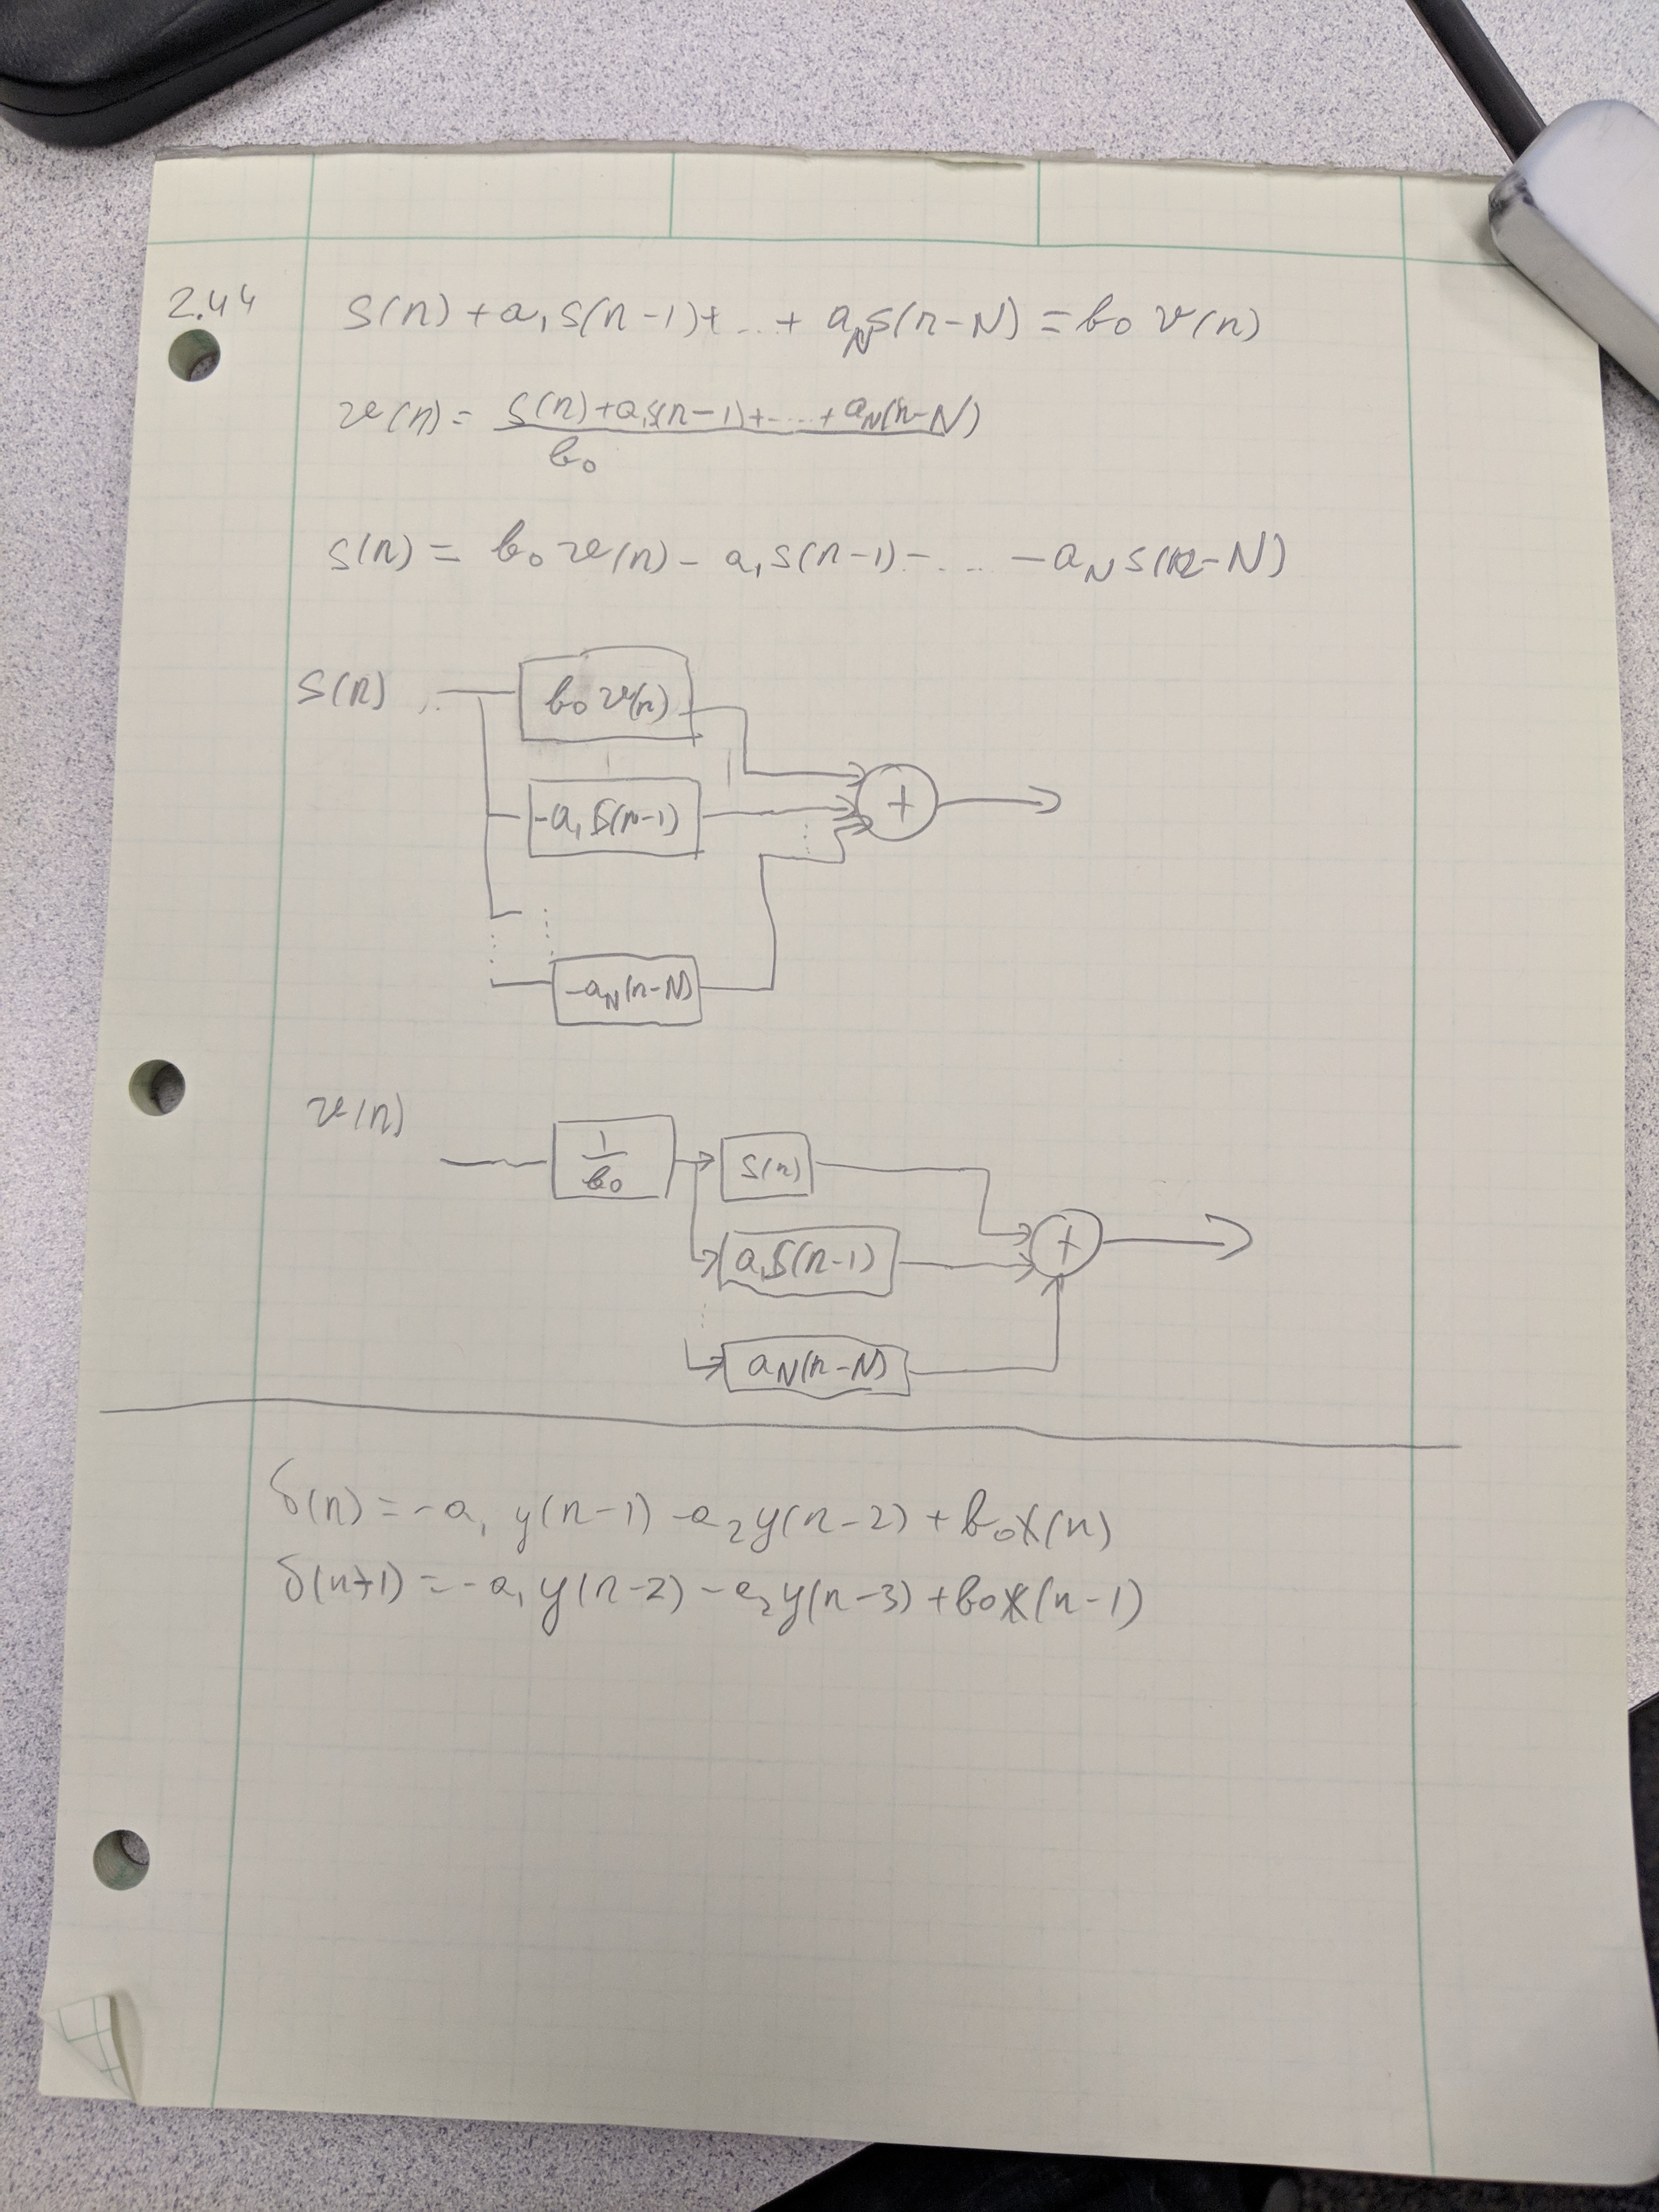 2.44
S(n) + a₁S(n-1) + ... + a_N S(n-N) = b₀ v(n)
v(n) = S(n) + a₁S(n-1) + .... + a_N(n-N)
b₀
S(n) = b₀ v(n) - a₁S(n-1) - .... - a_N S(n-N)
S(n)
b₀ v(n)
-a₁S(n-1)
+
-a_N(n-N)
v(n)
1
b₀
S(n)
a₁S(n-1)
+
a_N(n-N)
δ(n) = -a₁ y(n-1) - a₂y(n-2) + b₀x(n)
δ(n+1) = -a₁y(n-2) - a₂y(n-3) + b₀x(n-1)